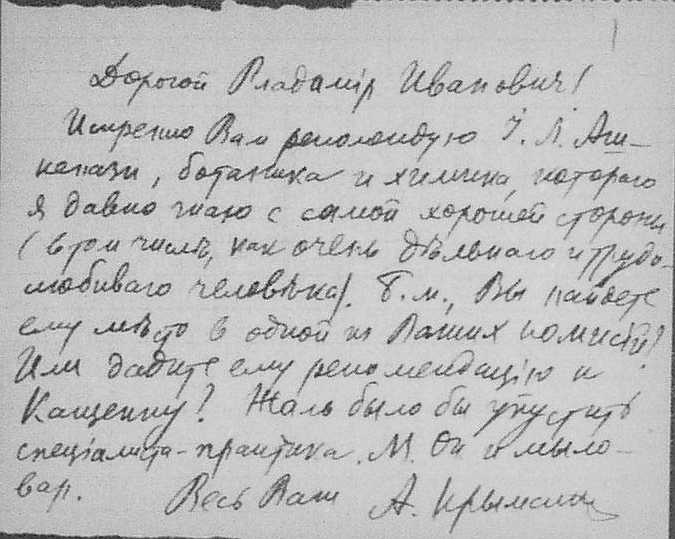 Дорогой Владимір Иванович!
Искренно Вам рекомендую І. Л. Аш-
кенази, ботаника и химика, котораго
я давно знаю с самой хорошей стороны
(в том числѣ, как очень дѣльнаго и трудо-
любиваго человѣка). Б. м., Вы найдете
ему мѣсто в одной из Ваших комиссій?
Или дадите ему рекомендацію к
Кащенку? Жаль было бы упустить
спеціалиста-практика. М. Он и мыло-
вар.
Весь Ваш А. Крымский